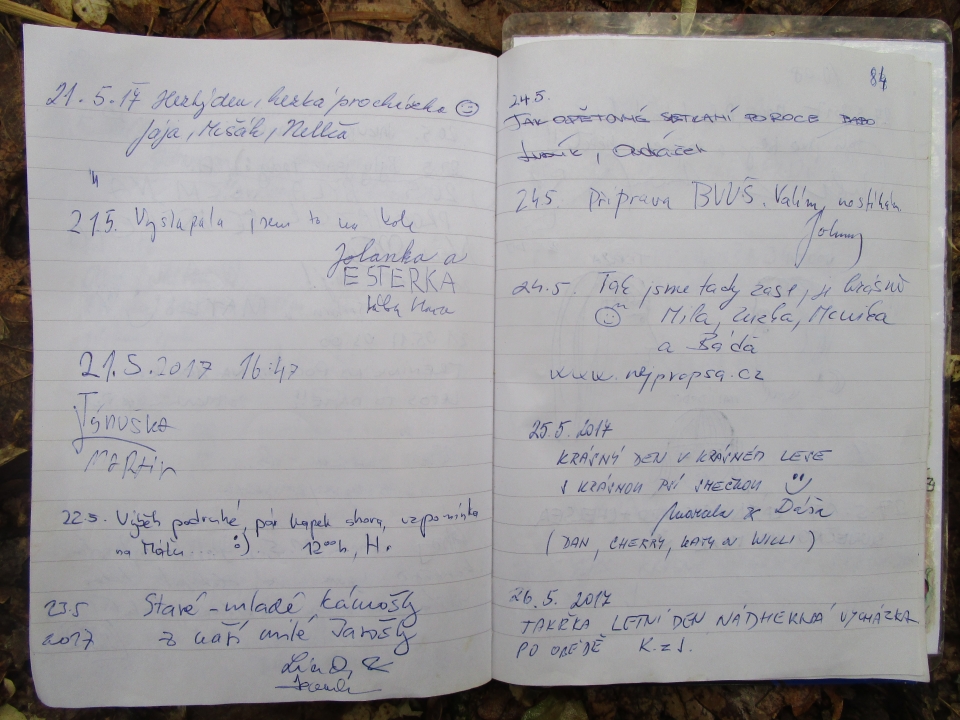 21.5.17 Hezký den, hezká procházka
Jája, Mišák,
21.5. Vyšlapala jsem to na kole
Jolanka a
ESTERKA
21.5.2017 16:47
Týnuška
MARTIN
22.5. Výběh podruhé, pár kapek shora, vzpomínka
na 12ººh, H.
23.5 Staré-mladé kámošky
2017 z naší milé Jarošky
84
24.5.
JAK OPĚTOVNÉ SETKANÍ PO ROCE
24.5. Příprava BVUŠ. Valím, nestíhám
Johnny
24.5. Tak jsme tady zase, je krásně
Míla, Monika
a Báďa
www.nejpropsa.cz
25.5.2017
KRÁSNÝ DEN V KRÁSNÉM LESE
S KRÁSNOU PSÍ SMEČKOU
Dáša
(DAN, CHERRY, KATY A WILLI)
26.5.2017
TAKŘKA LETNÍ DEN NÁDHERNÁ VYCHÁZKA
PO OBĚDĚ K. z J.